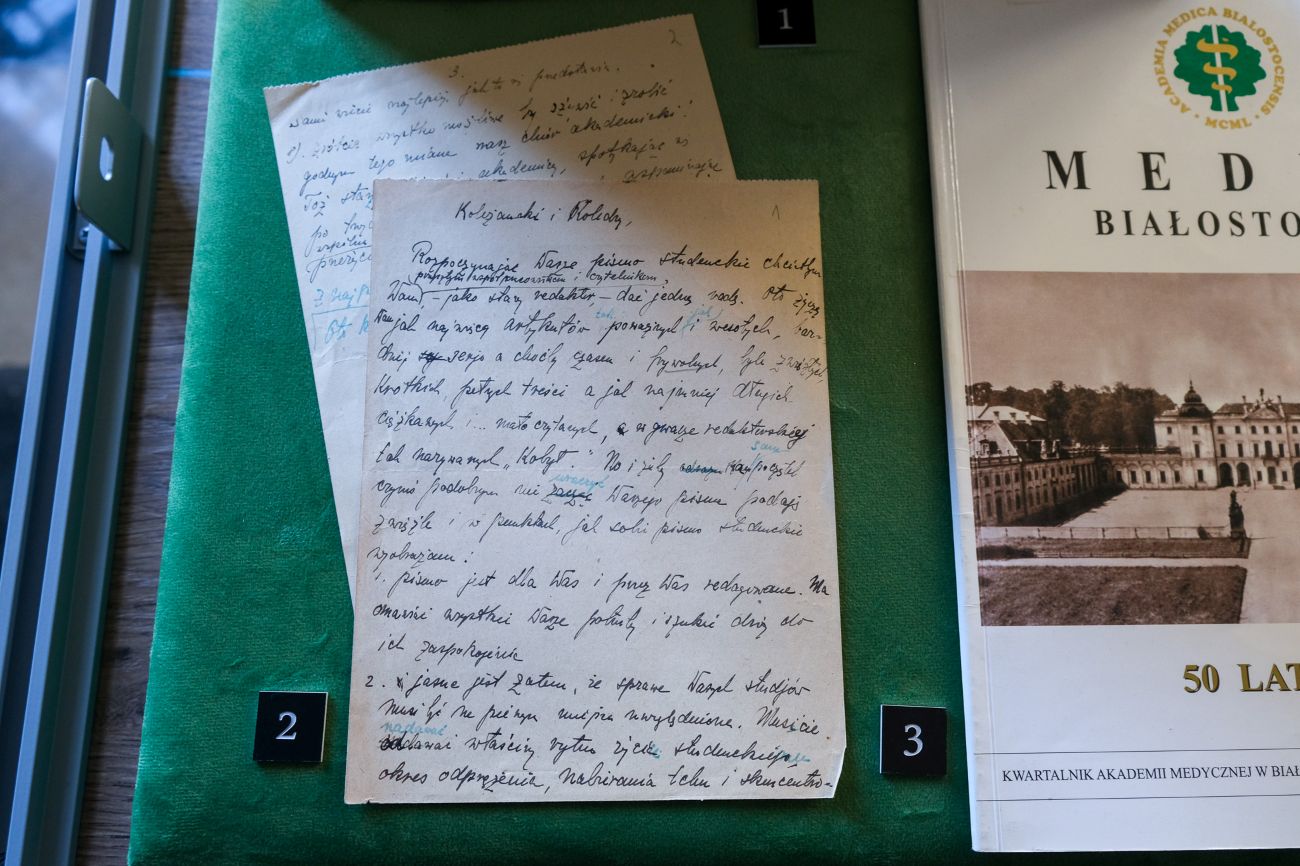 1
2
3.
Sami wiecie najlepiej jak to się przedstawia.
8). Zróbcie wszystko możliwe by
i zrobić
godnym tego miana nasz chór akademicki!
akademicy, spotykając
1
Koleżanki i Koledzy,
Rozpoczynając Wasze pismo studenckie chciałbym
i czytelnikom,
Wam, – jako stary redaktor, – dać jedną radę. Oto życzę
Wam jak najwięcej artykułów tak poważnych jak i wesołych, bar-
dziej serjo a choćby czasem i frywolnych, byle zwięzłych,
krótkich, pełnych treści a jak najmniej długich
ciężkawych i... mało czytanych, a w gwarze redaktorskiej
tak nazywanych „Kobył". No i żeby sam
czymś podobnym nie uraczyć Waszego pisma podaję
zwięźle i w punktach, jak sobie pismo studenckie
wyobrażam:
1. pismo jest dla Was i przez Was redagowane. Ma
omawiać wszystkie Wasze potrzeby i szukać dróg do
ich zaspokojenia
2. jasne jest zatem, że sprawy Waszych studjów
muszą być na pierwszym miejscu uwzględnione. Musicie
nadawać właściwy rytm życiu studenckiemu
okres odprężenia, nabierania tchu i skoncentro-
2
3
ACADEMIA MEDICA BIALOSTOCENSIS
• MCML •
MED
BIAŁOSTO
50 LAT
KWARTALNIK AKADEMII MEDYCZNEJ W BIAŁ